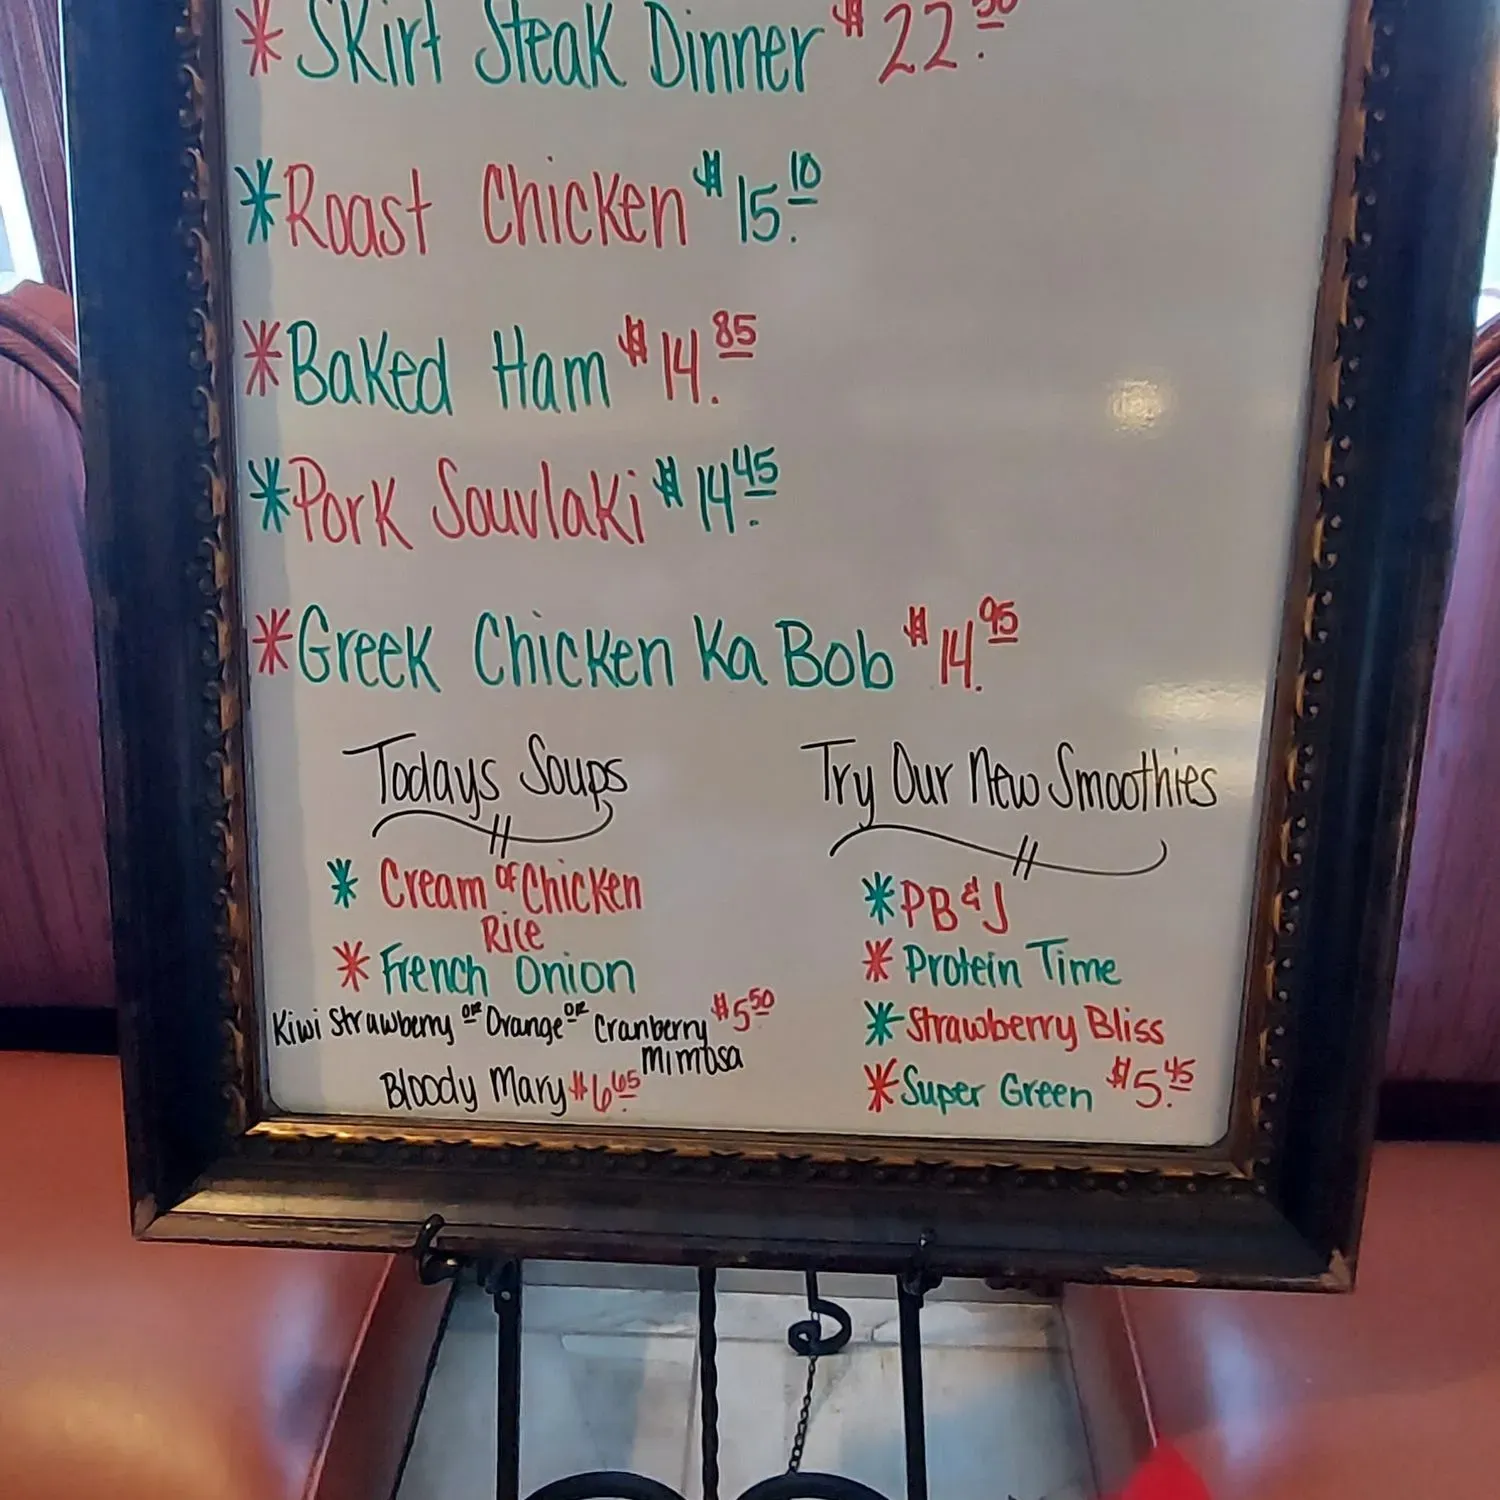 * Skirt Steak Dinner $22.50
* Roast Chicken $15.10
* Baked Ham $14.85
* Pork Souvlaki $14.45
* Greek Chicken Ka Bob $14.95
Todays Soups
* Cream of Chicken
Rice
* French Onion
Kiwi Strawberry or Orange or Cranberry $5.50
Mimosa
Bloody Mary $6.65
Try Our New Smoothies
* PB & J
* Protein Time
* Strawberry Bliss
* Super Green $5.45